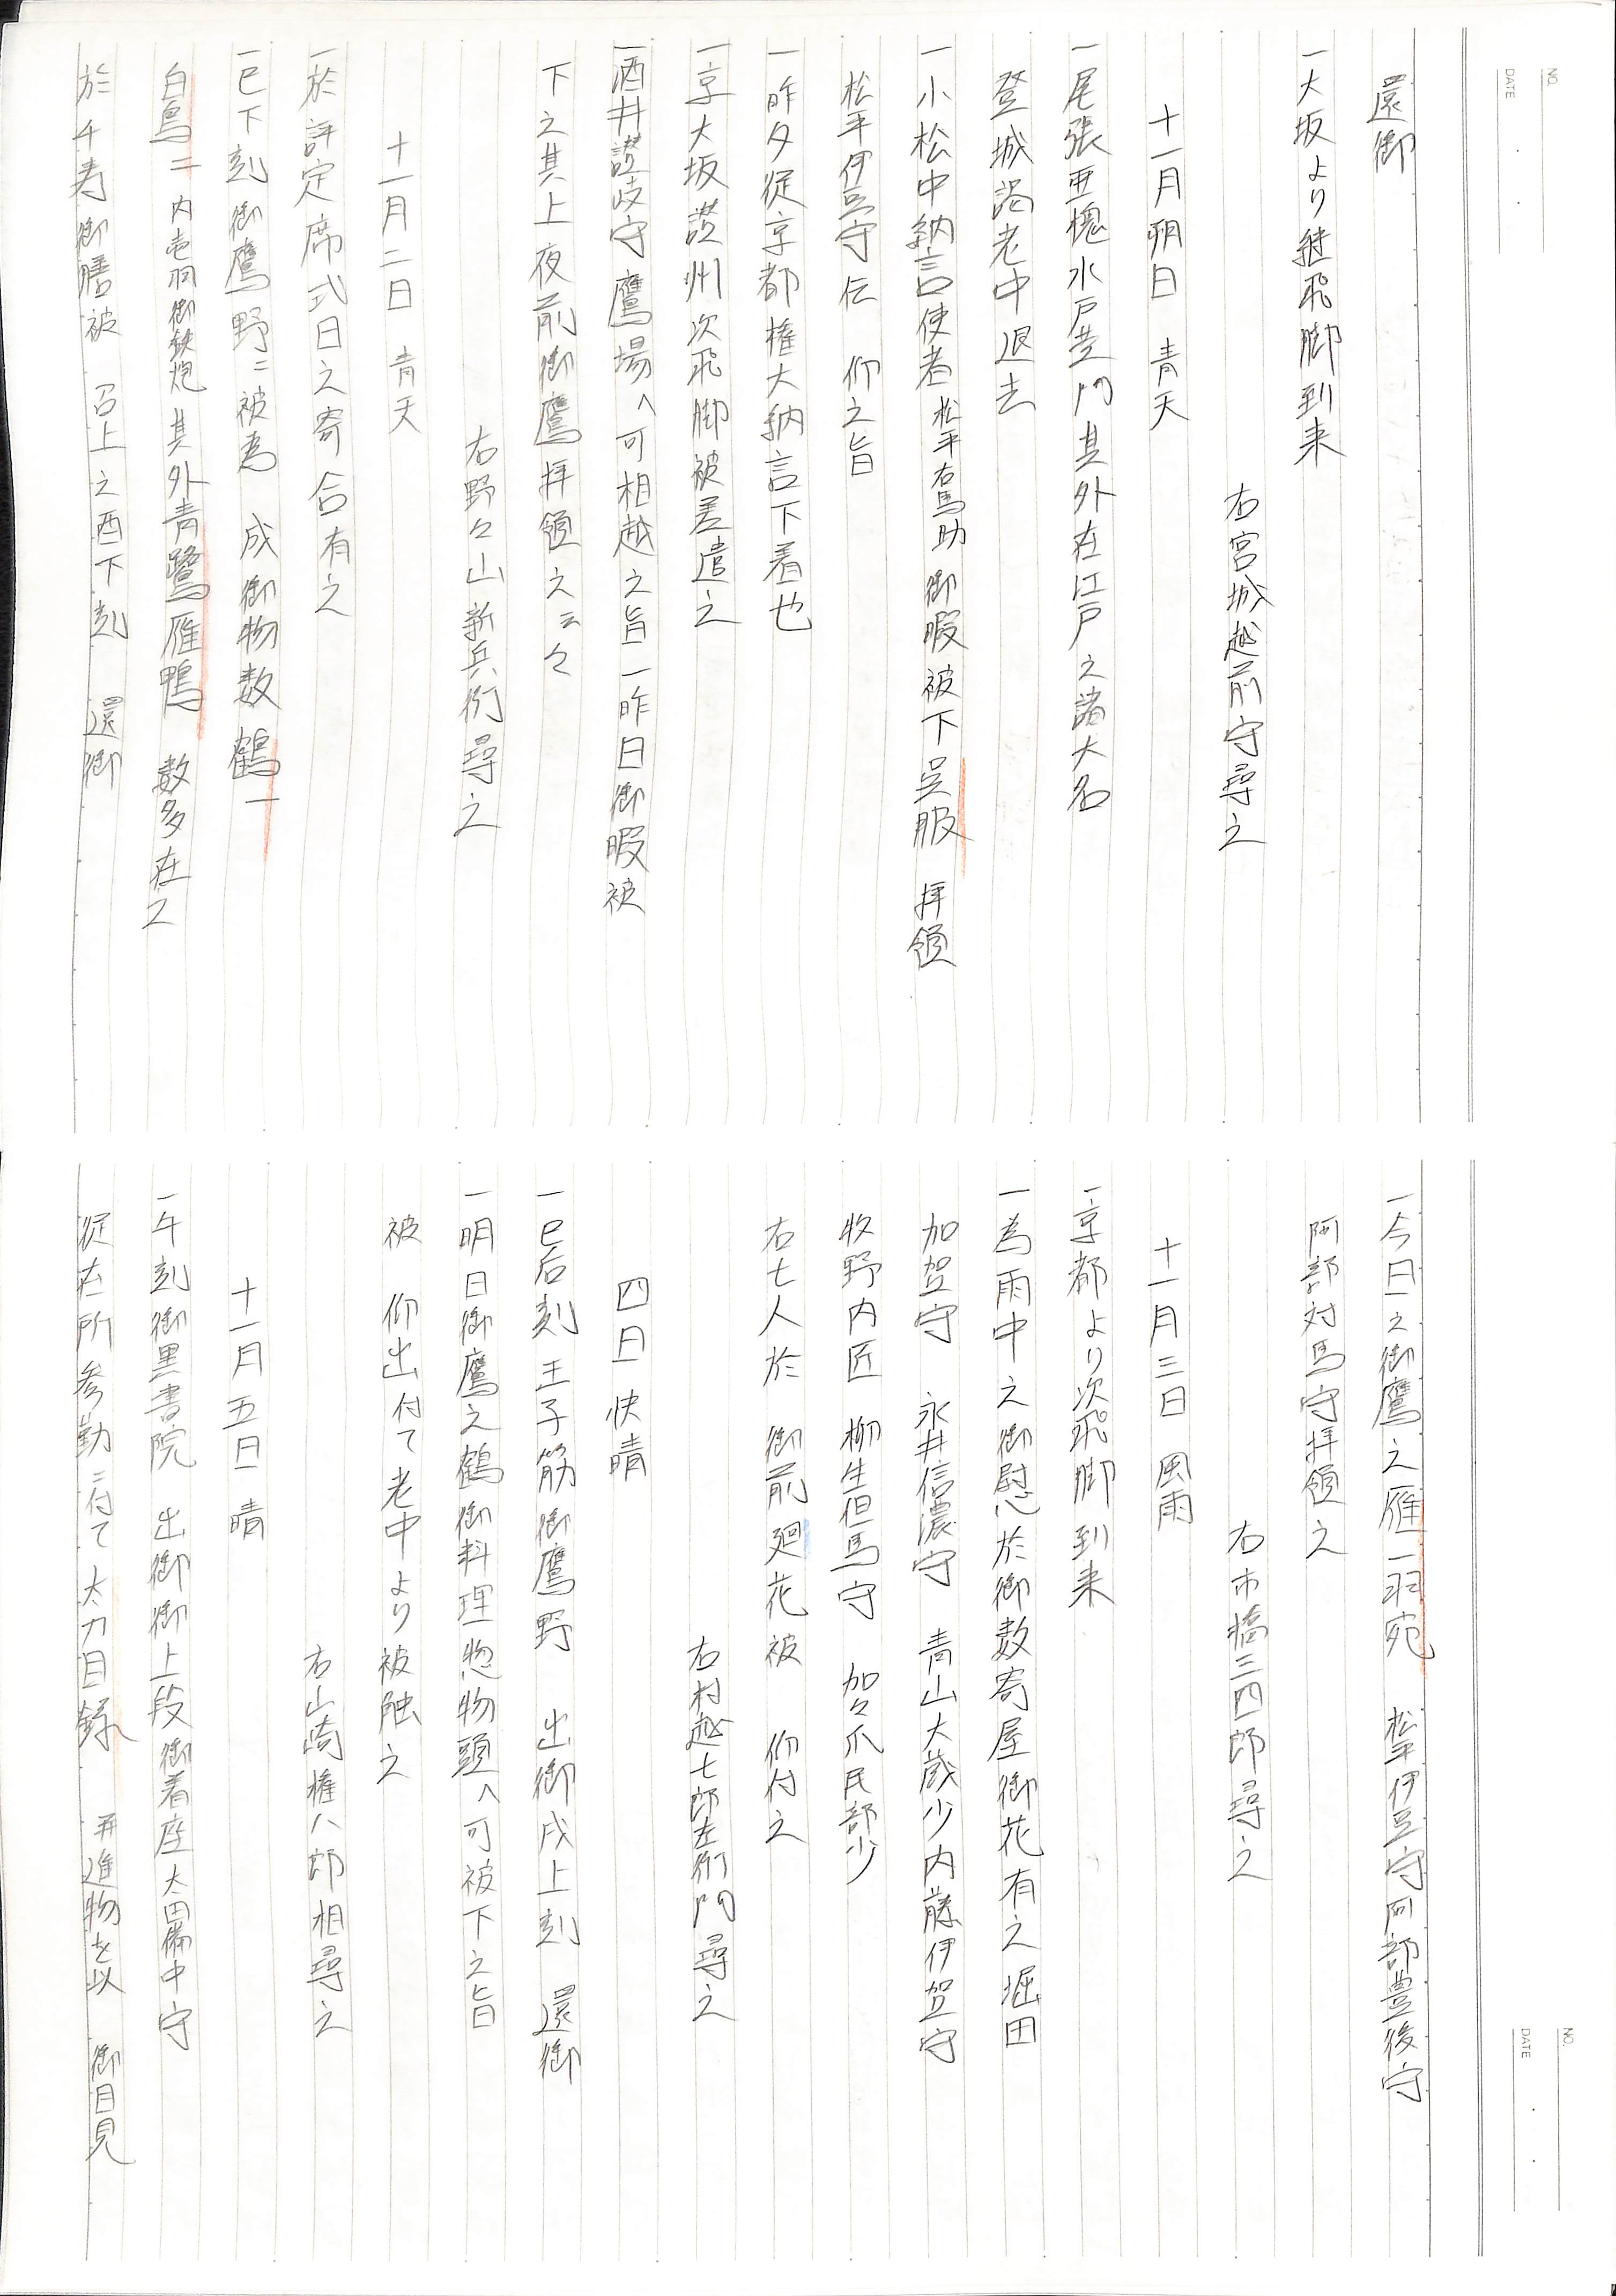 還御
一大坂より継飛脚到来
右宮城越前守尋之
十一月朔日 青天
一尾張亜槐水戸黄門其外在江戸之諸大名
登城謁老中退去
一小松中納言使者松平右馬助御暇被下呉服 拝領
松平伊豆守伝 仰之旨
一昨夕従京都権大納言下着也
一京大坂讃州次飛脚被差遣之
一酒井讃岐守鷹場へ可相越之旨一昨日御暇被
下之其上夜前御鷹拝領之云々
右野々山新兵衛尋之
十一月二日 青天
一於評定席式日之寄合有之
一巳下刻御鷹野ニ被為 成御物数鶴一
白鳥二 内壱羽御鉄炮 其外青鷺雁鴨 数多在之
於千寿御膳被 召上之酉下刻 還御
一今日之御鷹之雁一羽宛 松平伊豆守阿部豊後守
阿部対馬守拝領之
右市橋三四郎尋之
十一月三日 風雨
一京都より次飛脚到来
一為雨中之御慰於御数寄屋御花有之堀田
加賀守 永井信濃守 青山大蔵少内藤伊賀守
牧野内匠 柳生但馬守 加々爪民部少
右七人於 御前廻花被 仰付之
右村越七郎左衛門尋之
四日 快晴
一巳后刻王子筋御鷹野 出御戌上刻 還御
一明日御鷹之鶴御料理惣物頭へ可被下之旨
被 仰出付て老中より被触之
右山崎権八郎相尋之
十一月五日 晴
一午刻御黒書院 出御御上段御着座太田備中守
従在所参勤ニ付て太刀目録 并進物を以 御目見
NO.
DATE
NO.
DATE